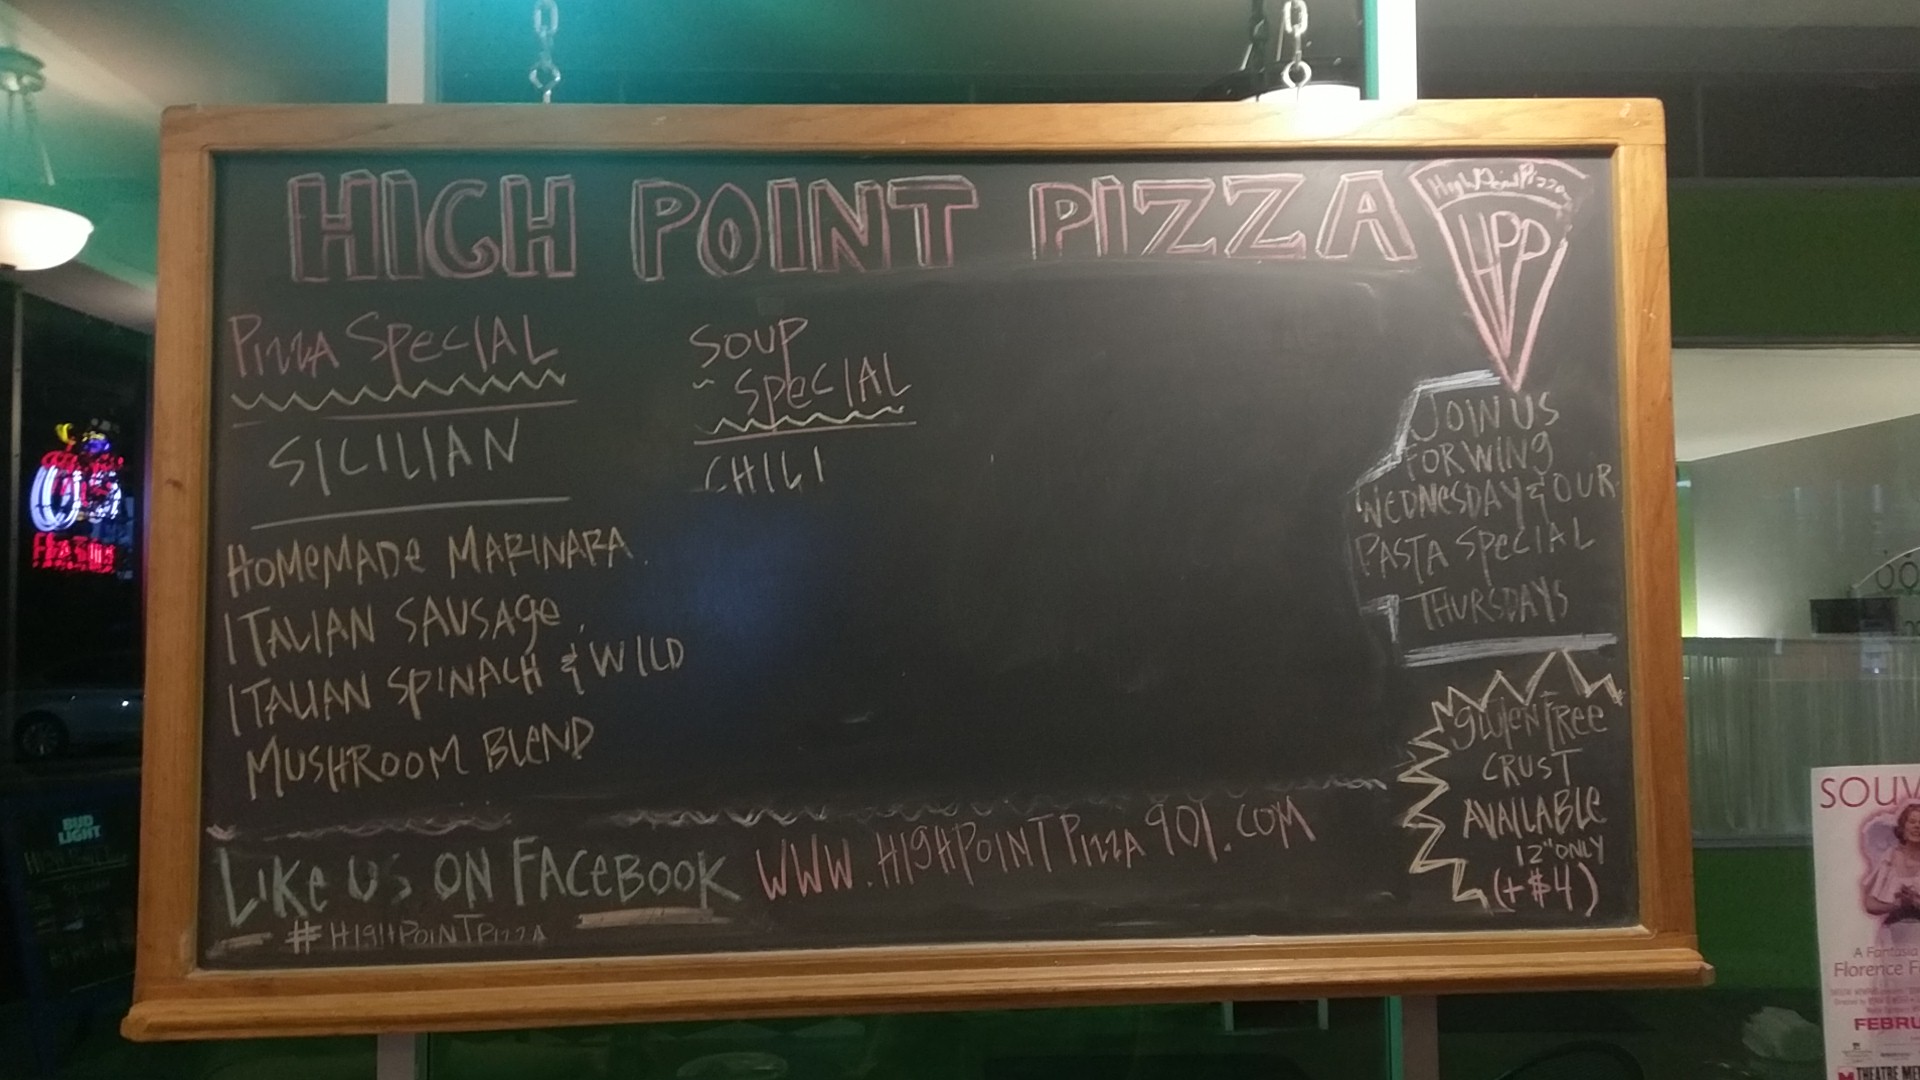 HIGH POINT PIZZA
High Point Pizza
HPP
Pizza Special
SICILIAN
HOMEMADE MARINARA
ITALIAN SAUSAGE,
ITALIAN SPINACH & WILD
MUSHROOM BLEND
SOUP
SPECIAL
CHILI
JOIN US
FOR WING
WEDNESDAY & OUR
PASTA SPECIAL
THURSDAYS
gluten free
CRUST
AVAILABLE
12" ONLY
(+$4)
LIKE US ON FACEBOOK
WWW.HIGHPOINTPIZZA901.COM
#HIGHPOINTPIZZA
BUD
LIGHT
SOUV
Florence F
FEBRU
THEATRE ME